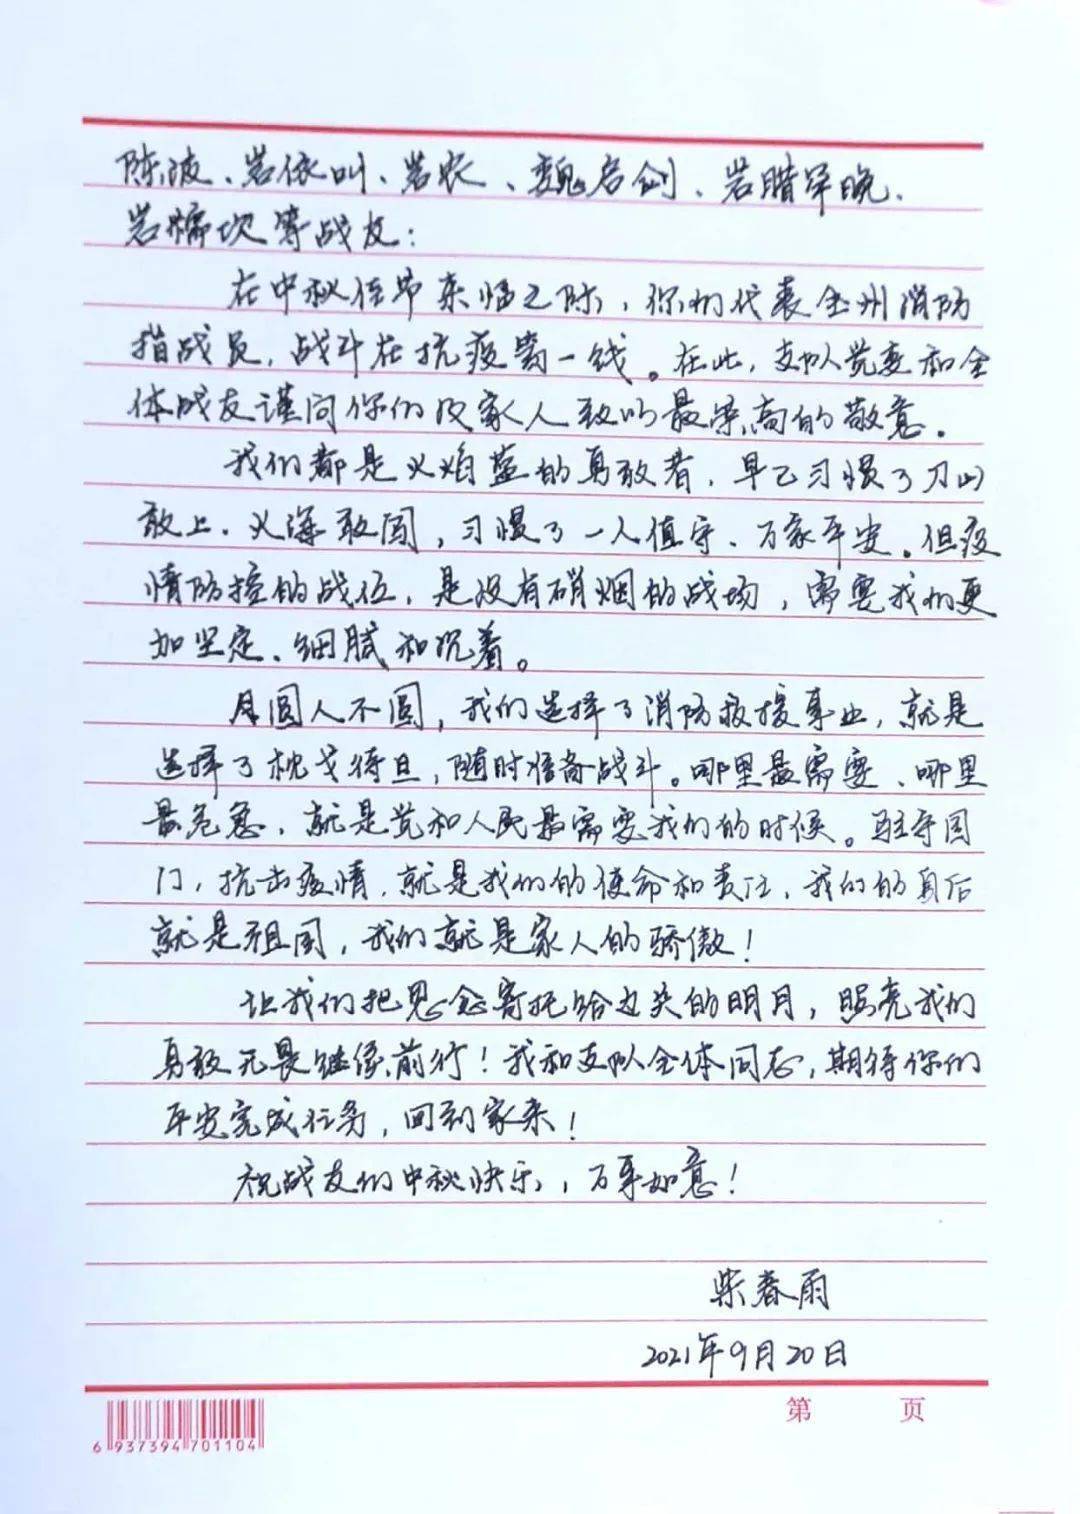 陈波、岩依叫、岩农、魏启剑、岩腊罕晚、
岩糯坎等战友：
在中秋佳节来临之际，你们代表全州消防
指战员，战斗在抗疫第一线。在此，支队党委和全
体战友谨向你们及家人致以最崇高的敬意。
我们都是火焰蓝的勇敢者，早已习惯了刀山
敢上、火海敢闯，习惯了一人值守、万家平安。但疫
情防控的战位，是没有硝烟的战场，需要我们更
加坚定、细腻和沉着。
月圆人不圆，我们选择了消防救援事业，就是
选择了枕戈待旦，随时准备战斗。哪里最需要、哪里
最危急，就是党和人民最需要我们的时候。驻守国
门，抗击疫情，就是我们的使命和责任，我们的身后
就是祖国，我们就是家人的骄傲！
让我们把思念寄托给边关的明月，照亮我们
勇敢无畏继续前行！我和支队全体同志，期待你们
平安完成任务，回到家来！
祝战友们中秋快乐，万事如意！
柴春雨
2021年9月20日
第 页
6 937394 701104